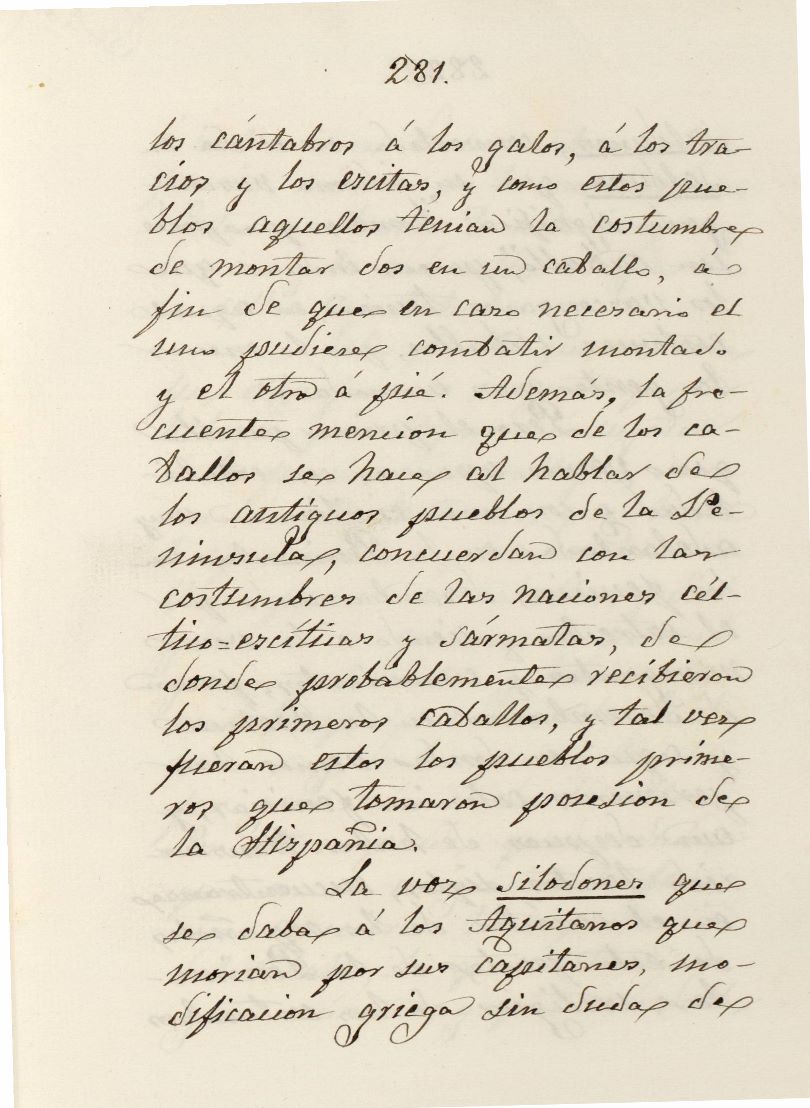 281.
los cántabros á los galos, á los tra-
cios y los escitas, y como estos pue-
blos aquellos tenian la costumbre
de montar dos en un caballo, á
fin de que en caso necesario el
uno pudiese combatir montado
y el otro á pié. Además, la fre-
cuente mencion que de los ca-
ballos se hace al hablar de
los antiguos pueblos de la Pe-
ninsula, concuerdan con las
costumbres de las naciones cél-
tico=escíticas y sármatas, de
donde probablemente recibieron
los primeros caballos, y tal vez
fueran estos los pueblos prime-
ros que tomaron posesion de
la Hispañia.
La voz silodones que
se daba á los Aquitanos que
morian por sus capitanes, mo-
dificacion griega sin duda de